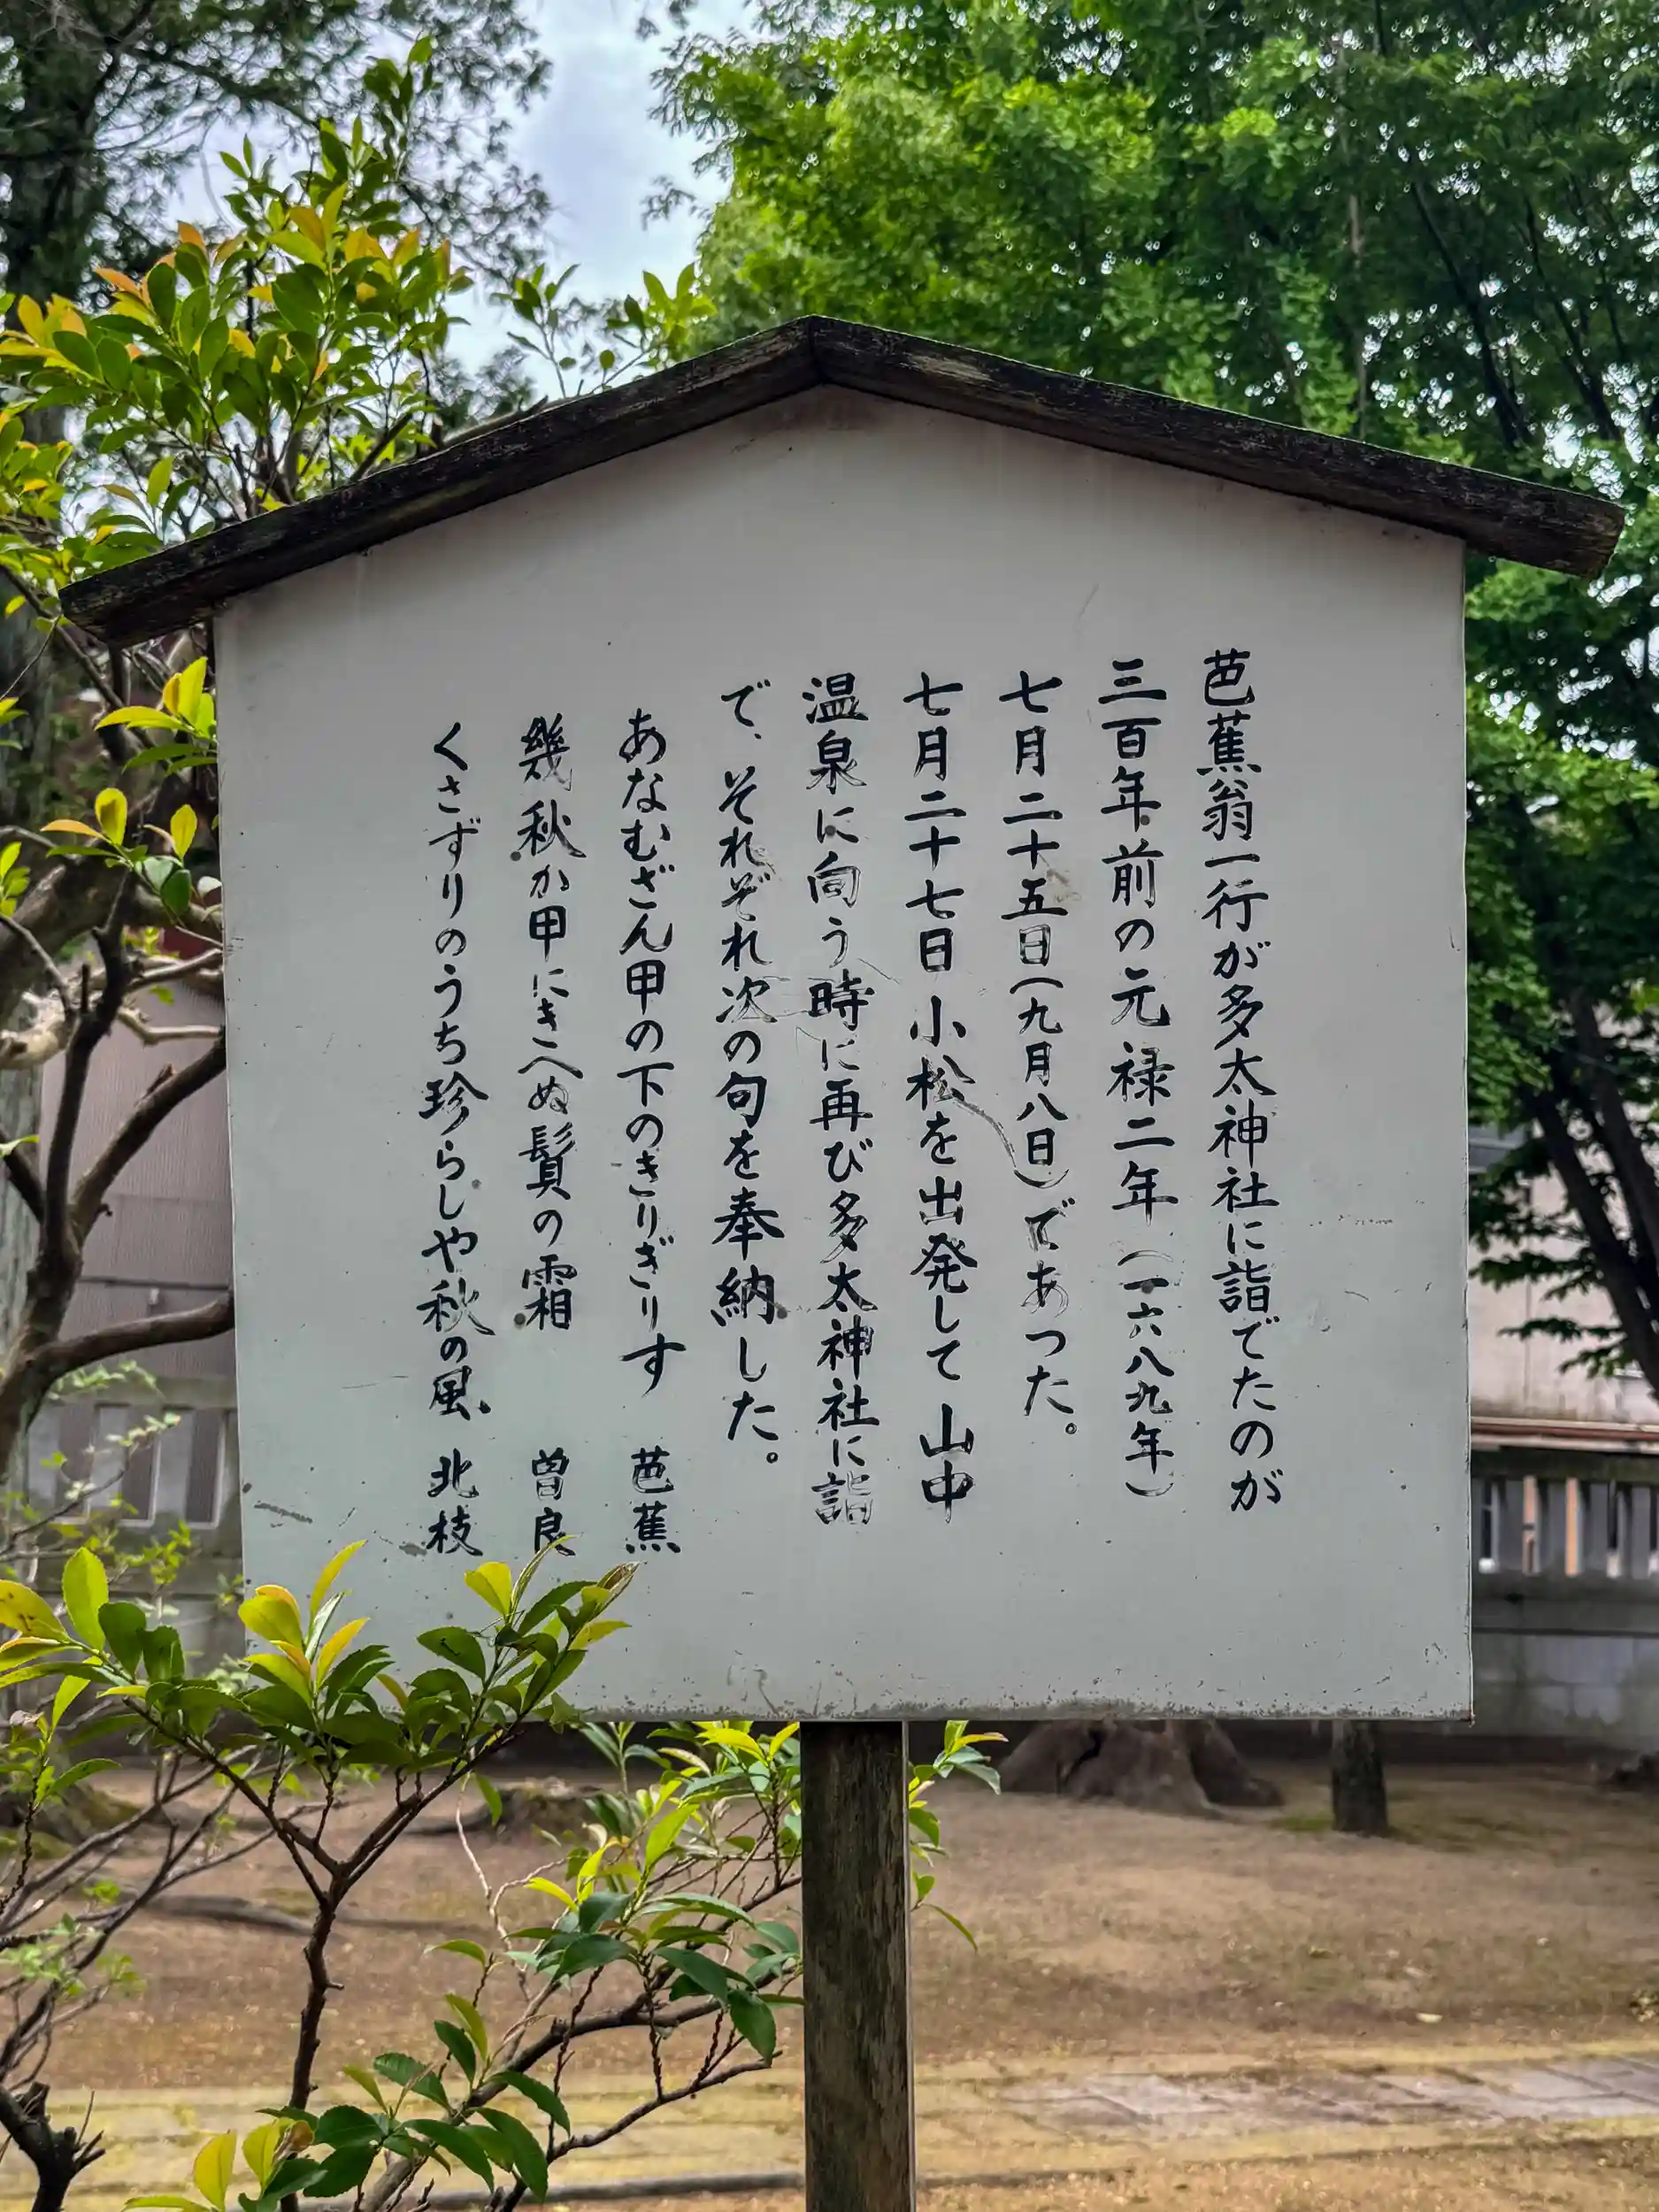 芭蕉翁一行が多太神社に詣でたのが
三百年前の元禄二年（一六八九年）
七月二十五日（九月八日）であつた。
七月二十七日小松を出発して山中
温泉に向う時に再び多太神社に詣
で、それぞれ次の句を奉納した。
あなむざん甲の下のきりぎりす 芭蕉
幾秋か甲にきへぬ鬂の霜 曽良
くさずりのうち珍らしや秋の風 北枝